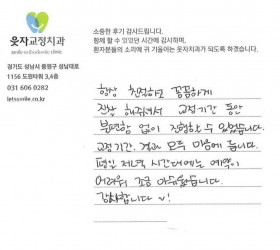 소중한 후기 감사드립니다.
함께 할 수 있었던 시간에 감사하며,
환자분들의 소리에 귀 기울이는 웃자치과가 되도록 하겠습니다.
웃자교정치과
smile orthodontic clinic
경기도 성남시 중원구 성남대로
1156 도원타워 3,4층
031 606 0282
letssmile.co.kr
항상 친절하고 꼼꼼하게
진찰 해주셔서 교정기간 동안
불편함 없이 진행할 수 있었습니다.
교정기간, 결과 모두 마음에 듭니다.
평일 저녁 시간대에는 예약이
어려워 조금 아쉬웠습니다.
감사합니다